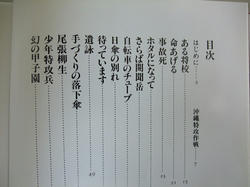 目次
はじめに
沖縄特攻作戦
ある将校
命あげる
事故死
ホタルになって
さらば開聞岳
自転車のチューブ
日傘の別れ
待っています
遺詠
手づくりの落下傘
尾張柳生
少年特攻兵
幻の甲子園
49